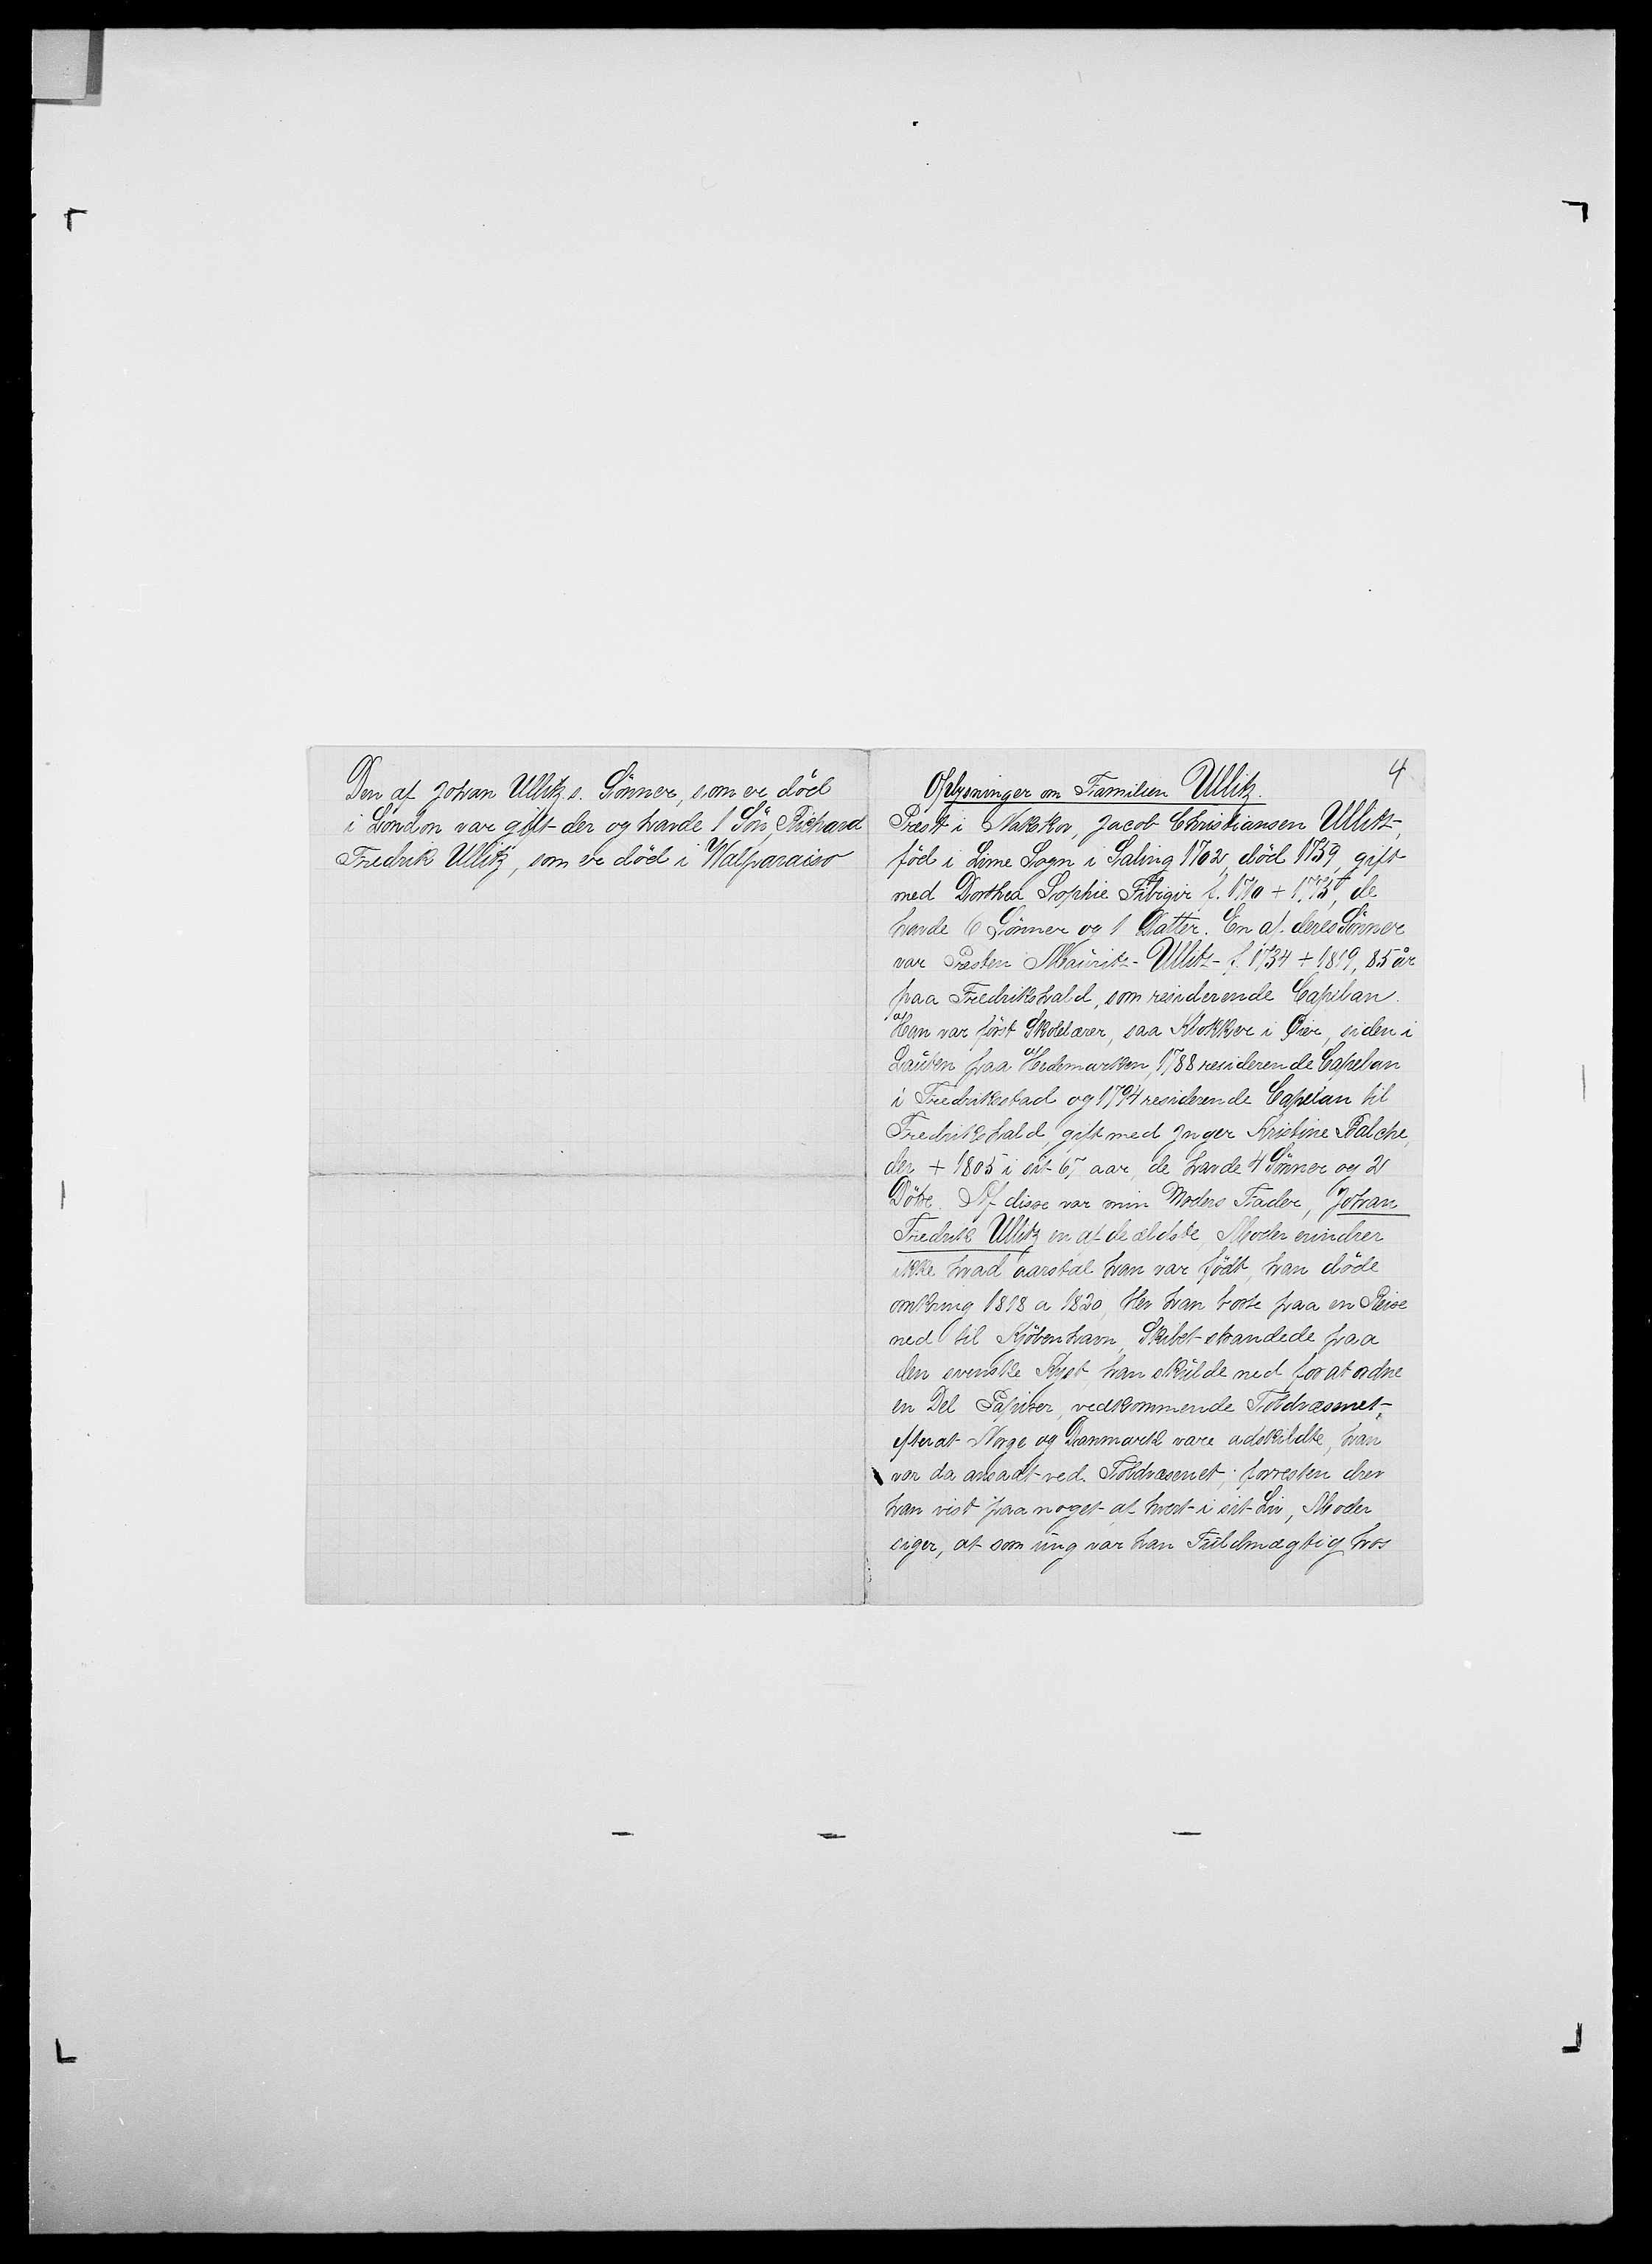 Den af Johan Ullitz s. Sönner, som er död
i London var gift der og havde 1 Sön, Richard
Fredrik Ullitz, som er död i Walparaiso
4
Oplysninger om Familien Ullitz.
Præst i Nakskov, Jacob Christiansen Ullitz,
föd i Lime Sogn i Saling 1702, död 1739, gift
med Dorthea Sophie Fibigir f. 1710 + 1775, de
havde 6 Sönner og 1 Datter. En af deres Sönner
var Præsten Mauritz Ullitz f. 1734 + 1819, 85 år
paa Fredrikshald, som residerende Capelan.
Han var först Skolelærer, saa Klokker i Öier, siden i
Lauten paa Hedemarken, 1788 residerende Capelan
i Fredrikstad og 1794 residerende Capelan til
Fredrikshald, gift med Inger Kristine Balche,
der + 1805 i sit 67 aar, de havde 4 Sönner og 2
Dötre. Af disse var min Moders Fader, Johan
Fredrik Ullitz en af de ældste, Moder erindrer
ikke hvad aarstal han var födt, han döde
omkring 1818 a 1820, blev han borte paa en Reise
ned til Kjöbenhavn, Skibet strandede paa
den svenske Kyst, han skulde ned for at ordne
en Del Papirer, vedkommende Toldvæsnet,
efterat Norge og Danmark vare adskildte, han
var da ansadt ved Toldvæsenet; forresten drev
han vist paa noget af hvert i sit Liv, Moder
siger, at som ung var han Fuldmægtig hos